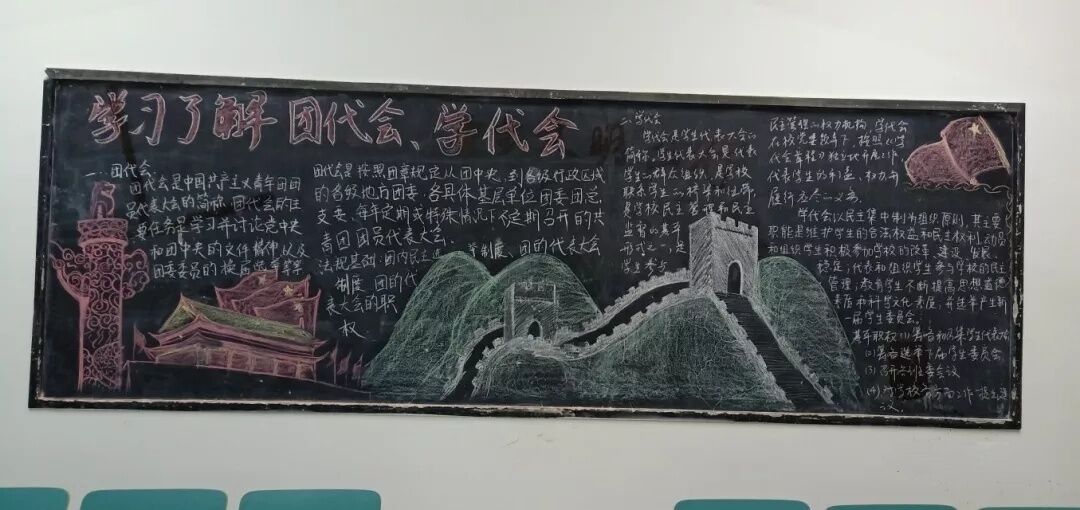 学习了解团代会、学代会
一、团代会
团代会是中国共产主义青年团团
员代表大会的简称，团代会的主
要任务是学习并讨论党中央
和团中央的文件精神以及
团委委员的换届选举等
团代会是按照团章规定从团中央，到各级行政区域
的各级地方团委，各具体基层单位团委团总
支委，每年定期或特殊情况下不定期召开的共
青团团员代表大会。
法规基础：团内民主选举制度、团的代表大会
制度、团的代
表大会的职
权
二、学代会
学代会是学生代表大会的
简称，学生代表大会是代表
学生的群众组织，是学校
联系学生的桥梁和纽带，
是学校民主管理和民主
监督的基本
形式之一，是
学生参与
民主管理的权力机构，学代会
在校党委领导下，按照《学
代会章程》独立地开展工作
代表学生的利益，权力与
履行应尽的义务。
学代会以民主集中制为组织原则，其主要
职能是维护学生的合法权益和民主权利，动员
和组织学生积极参加学校的改革、建设、发展、
稳定；代表和组织学生参与学校的民主
管理；教育学生不断提高思想道德
素质和科学文化素质，并选举产生新
一届学生委员会。
基本职权：(1)筹备和召集学生代表大会
(2)筹备选举下届学生委员会
(3)召开各列主委会议
(4)对学校各方面工作提出建
议